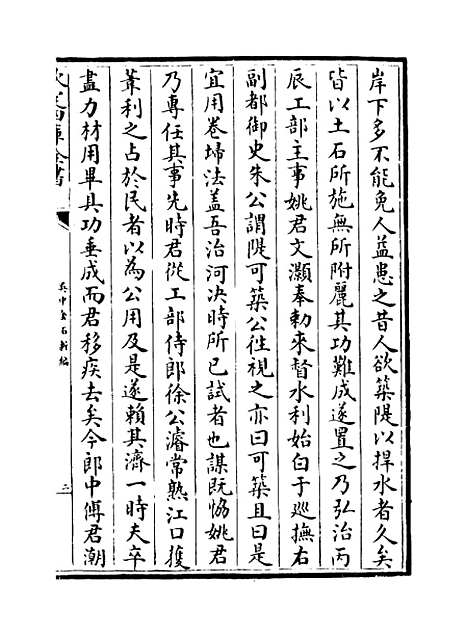 岸下多不能免人益患之昔人欲築隄以捍水者久矣
皆以土石所施無所附麗其功難成遂置之乃弘治丙
辰工部主事姚君文灝奉勅來督水利始白于巡撫右
副都御史朱公謂隄可築公徃視之亦曰可築且曰是
宜用巻埽法蓋吾治河決時所已試者也謀既恊姚君
乃專任其事先時君從工部侍郎徐公濬常熟江口獲
葦利之占於民者以為公用及是遂賴其濟一時夫卒
盡力材用畢具功垂成而君移疾去矣今郎中傅君潮
欽定四庫全書
吳中金石新編